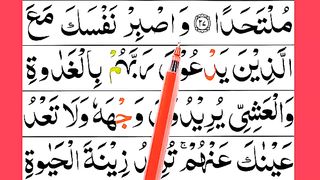 مُلْتَحَدًا ﴿٢٧﴾ وَاصْبِرْ نَفْسَكَ مَعَ
الَّذِيْنَ يَدْعُوْنَ رَبَّهُمْ بِالْغَدٰوةِ
وَالْعَشِيِّ يُرِيْدُوْنَ وَجْهَهٗ وَلَا تَعْدُ
عَيْنٰكَ عَنْهُمْ ۚ تُرِيْدُ زِيْنَةَ الْحَيٰوةِ